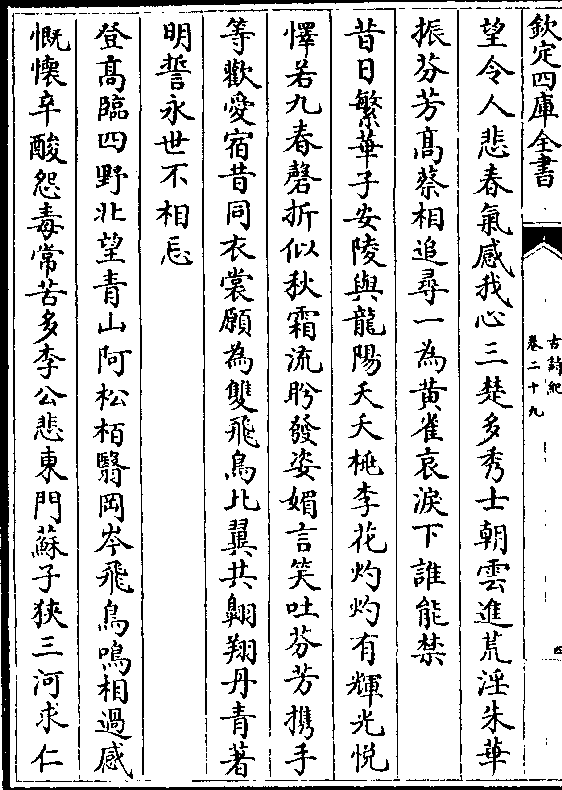 欽定四庫全書
古詩紀
卷二十九
四
望令人悲春氣感我心三楚多秀士朝雲進荒淫朱華
振芬芳髙蔡相追尋一為黄雀哀淚下誰能禁
昔日繁華子安陵與龍陽夭夭桃李花灼灼有輝光悅
懌若九春磬折似秋霜流盻發姿媚言笑吐芬芳携手
等歡愛宿昔同衣裳願為雙飛鳥比翼共翺翔丹青著
明誓永世不相忘
登髙臨四野北望青山阿松栢翳岡岑飛鳥鳴相過感
慨懷辛酸怨毒常苦多李公悲東門蘇子狹三河求仁